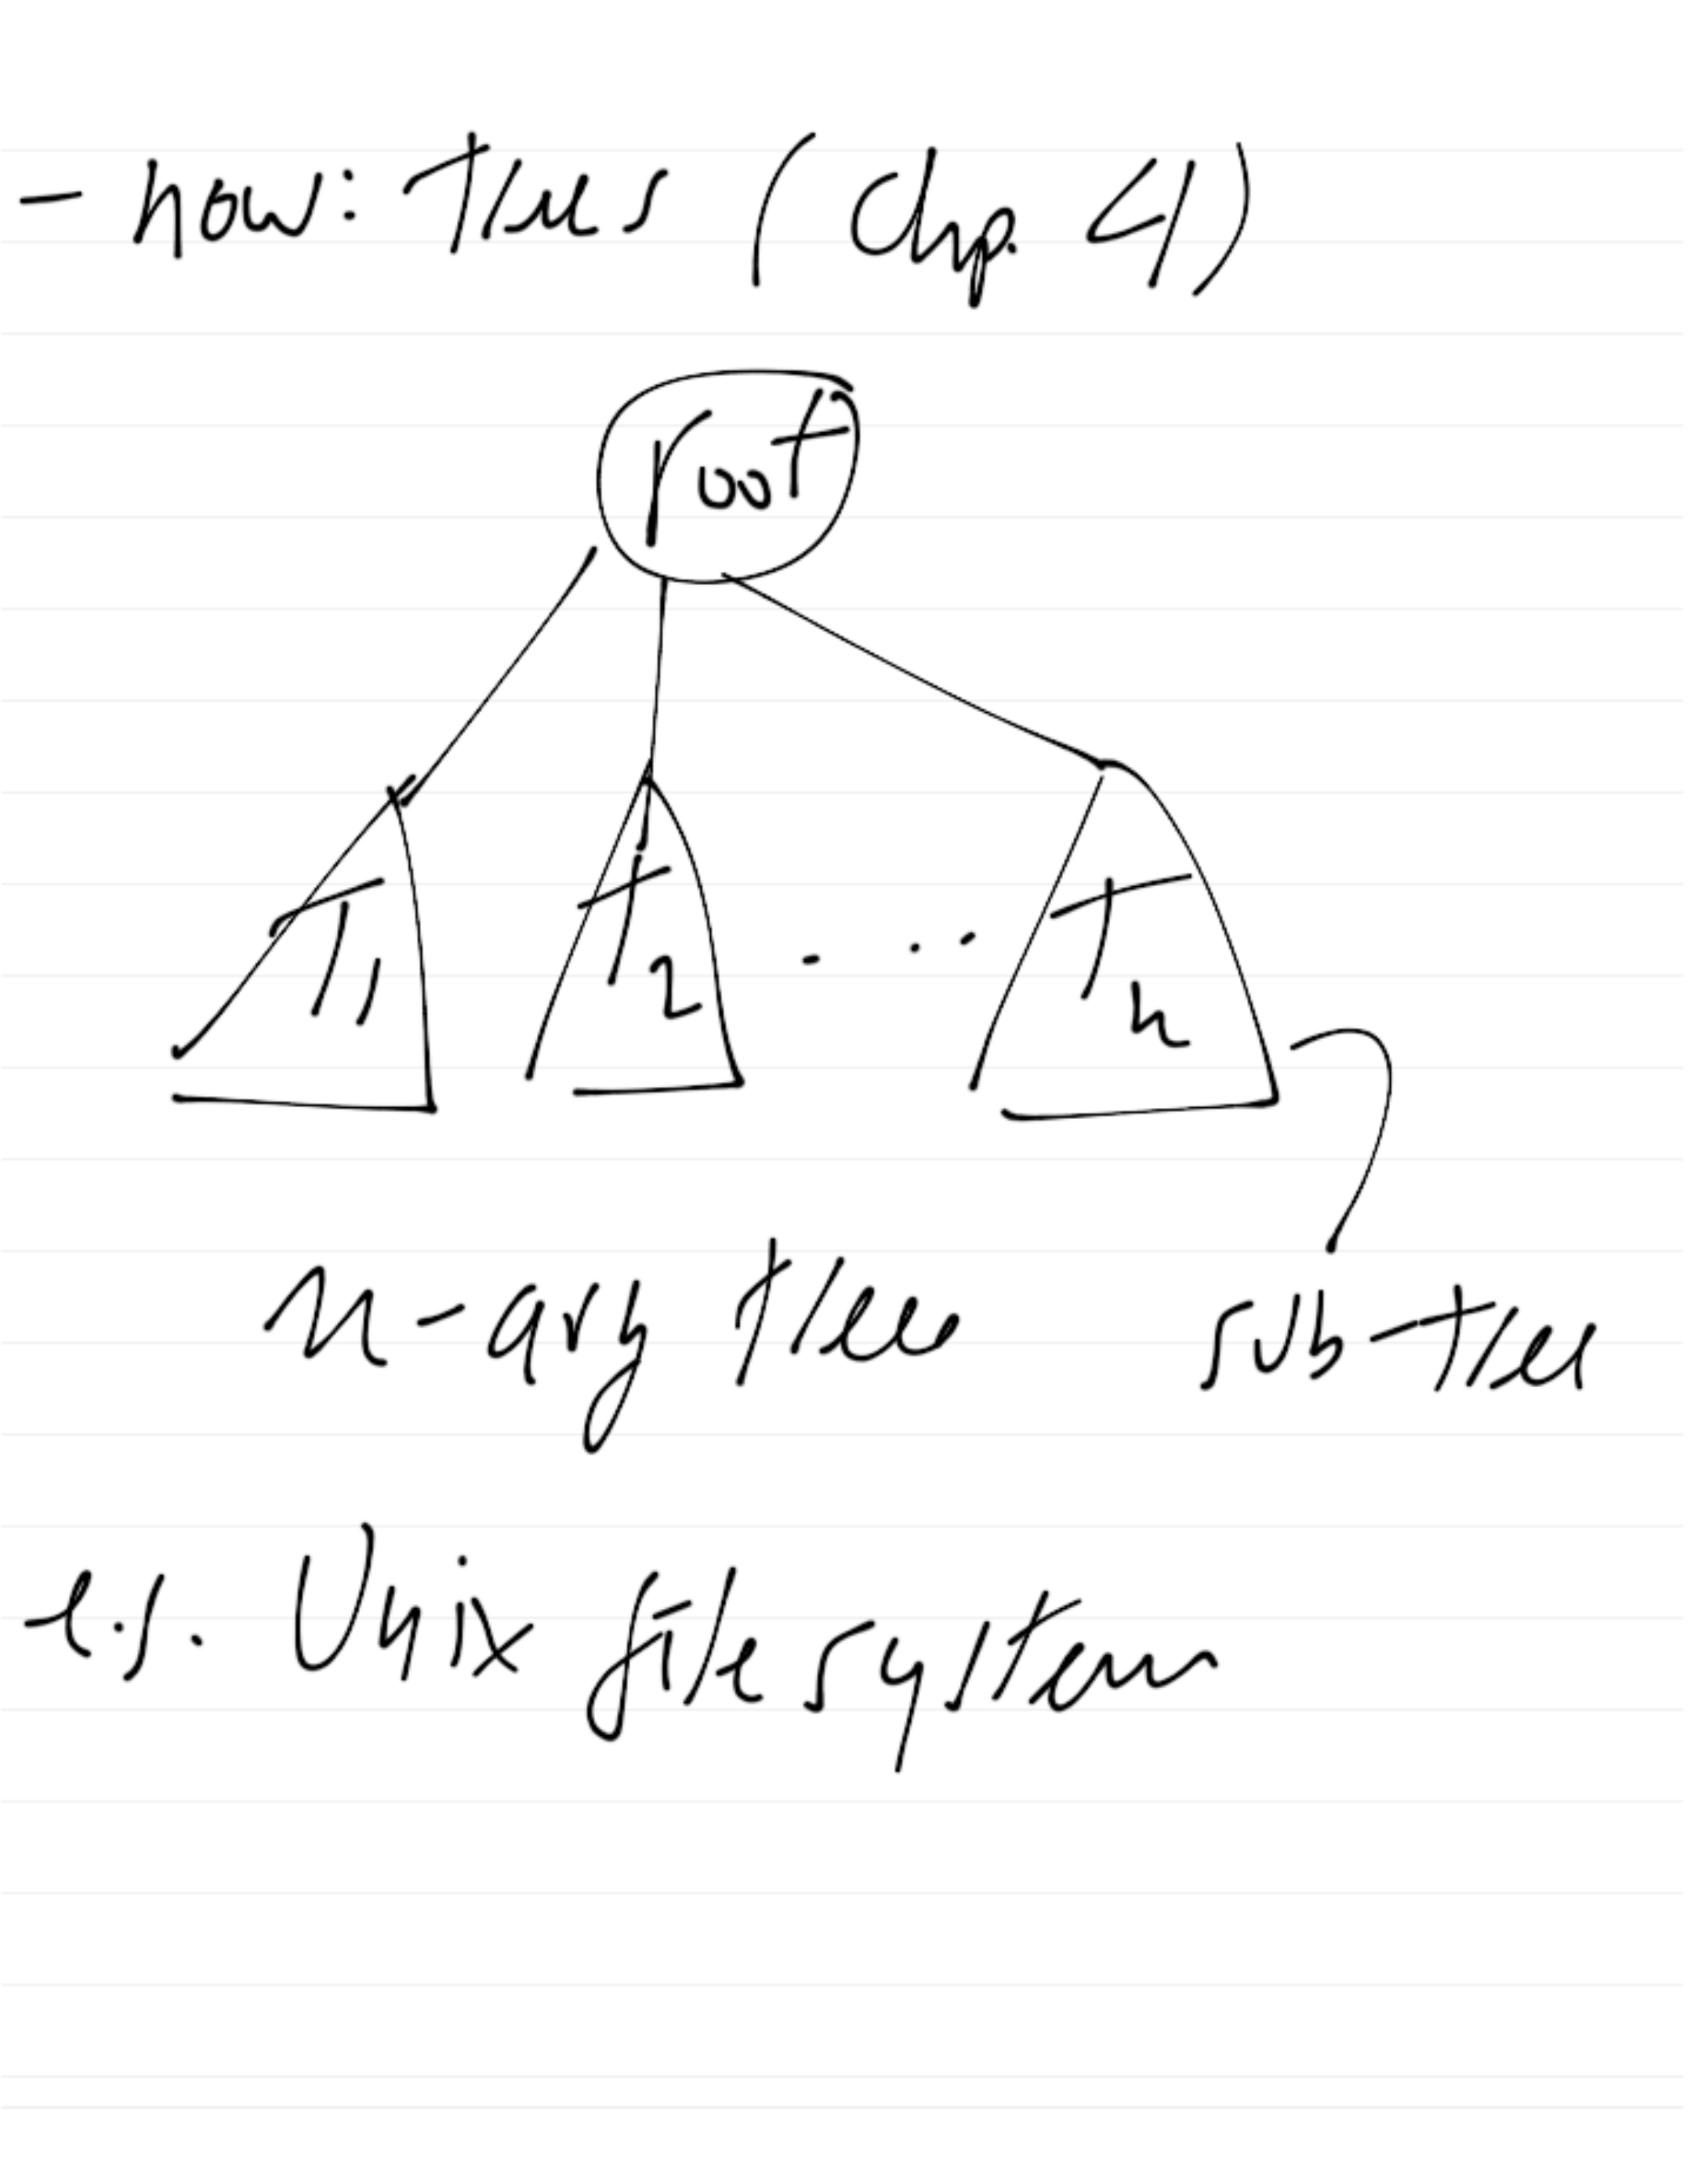 - now: Trees (Chp. 4)
root
T1 T2 ... Tn
n-ary tree sub-tree
e.g. Unix file system